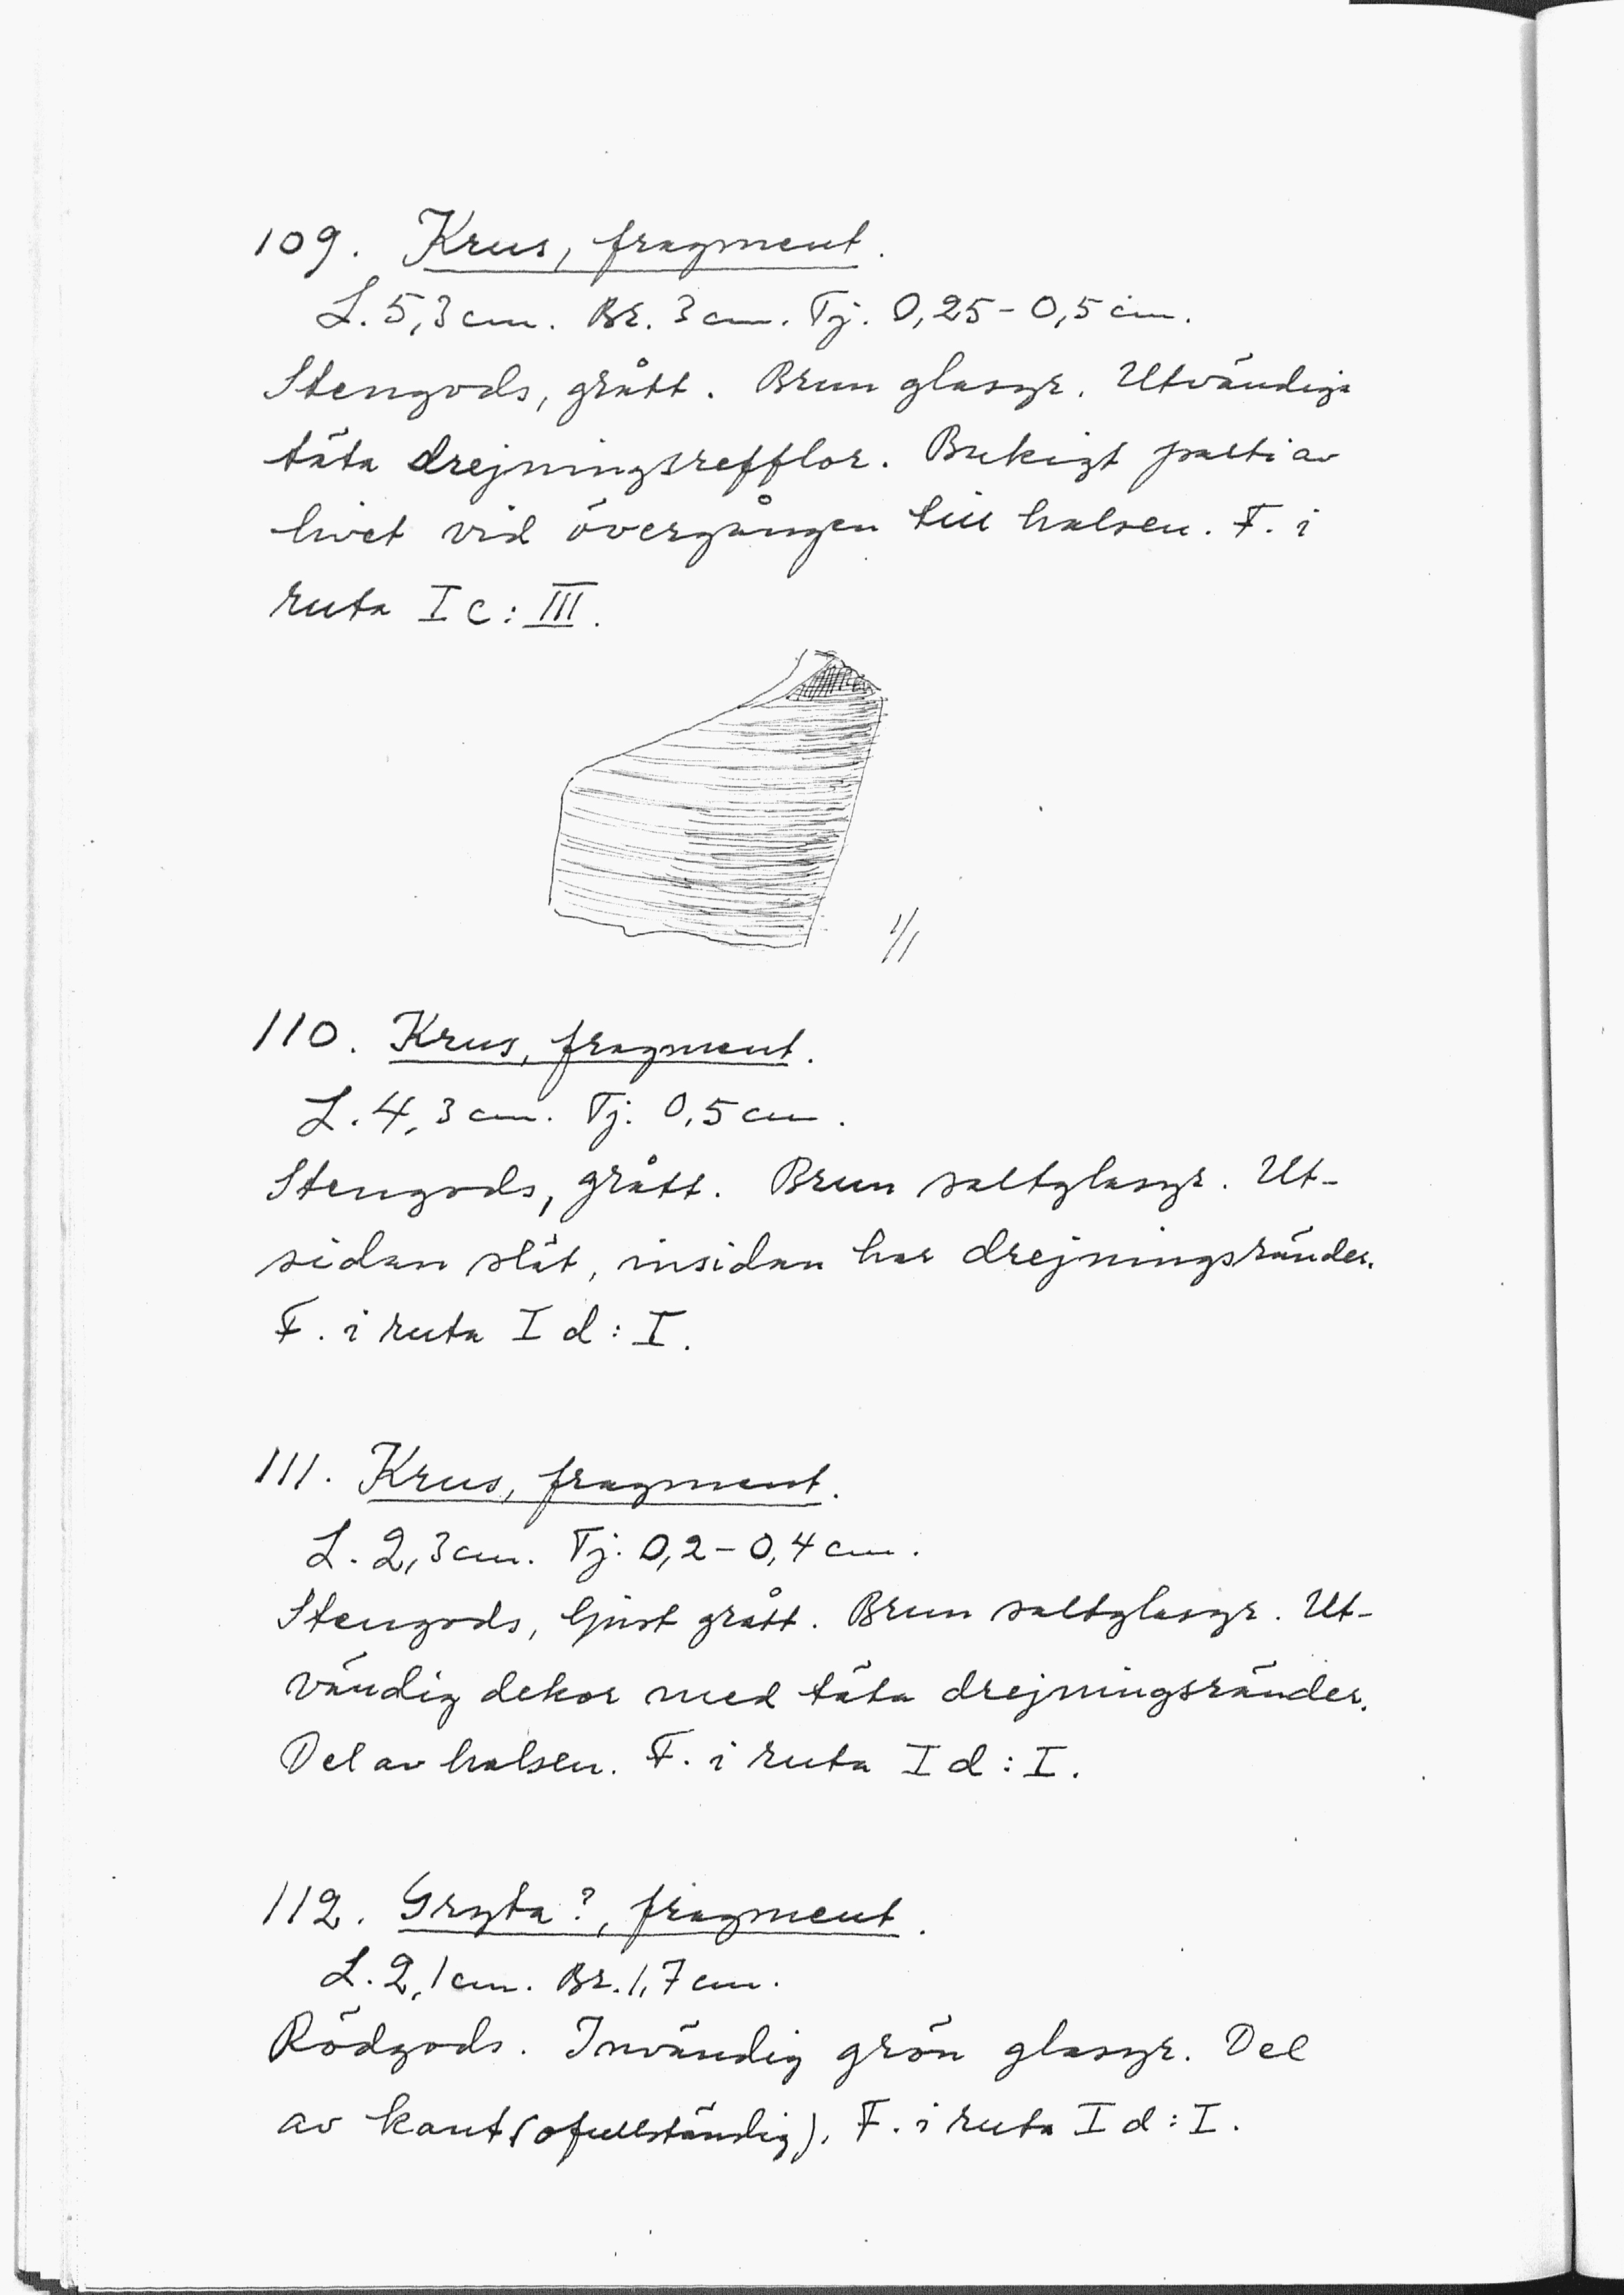 109. Krus, fragment.
L. 5,3 cm. Br. 3 cm. Tj. 0,25-0,5 cm.
Stengods, grått. Brun glasyr. Utvändiga
täta drejningsrefflor. Bukigt parti av
livet vid övergången till halsen. F. i
ruta I c : III.
1/1
110. Krus, fragment.
L. 4,3 cm. Tj. 0,5 cm.
Stengods, grått. Brun saltglasyr. Ut-
sidan slät, insidan har drejningsränder.
F. i ruta I d : I.
111. Krus, fragment.
L. 2,3 cm. Tj. 0,2-0,4 cm.
Stengods, ljust grått. Brun saltglasyr. Ut-
vändig dekor med täta drejningsränder.
Del av halsen. F. i ruta I d : I.
112. Gryta?, fragment.
L. 2,1 cm. Br. 1,7 cm.
Rödgods. Invändig grön glasyr. Del
av kant (ofullständig). F. i ruta I d : I.